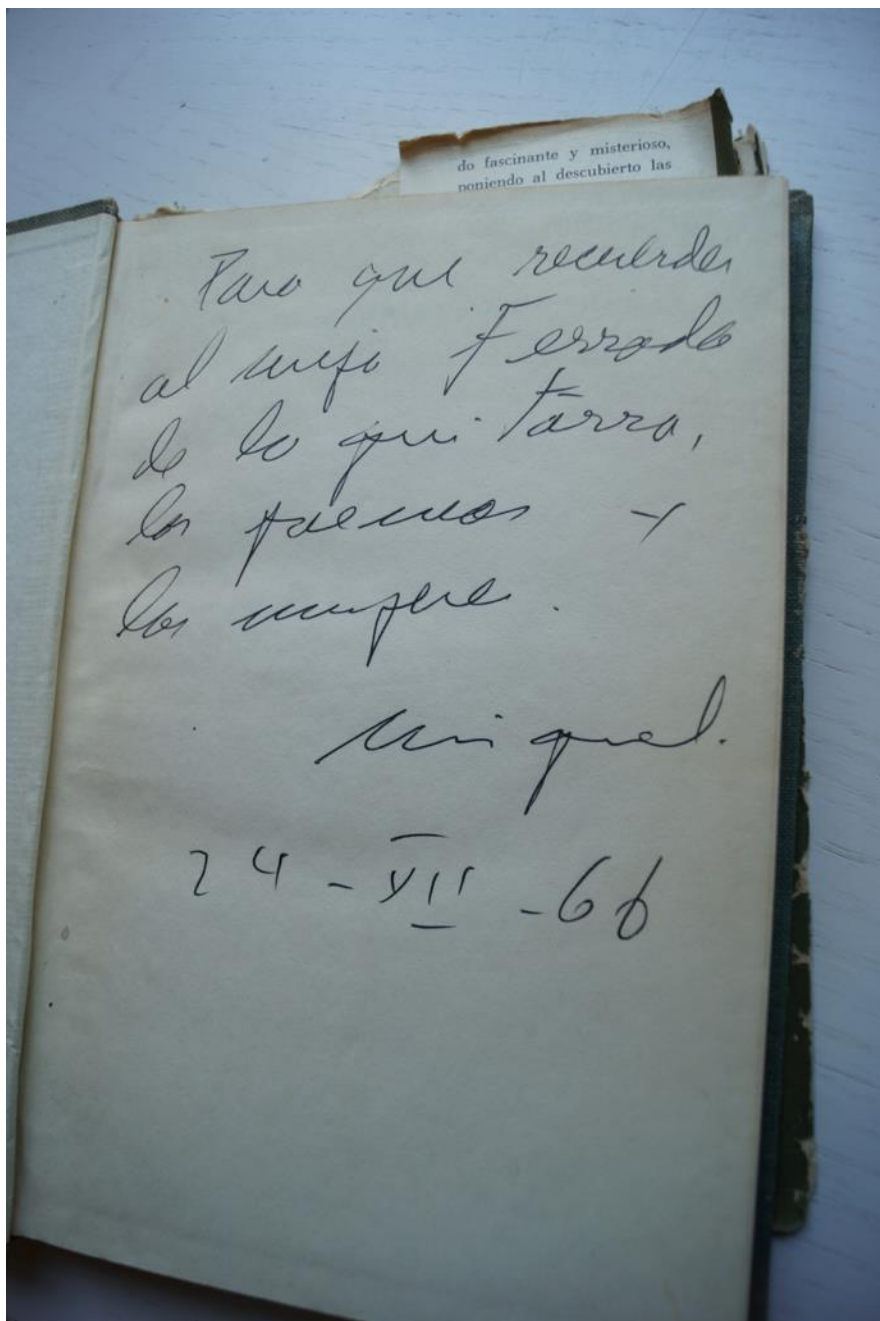 do fascinante y misterioso,
poniendo al descubierto las
Para que recuerdes
al viejo Ferrada
de la guitarra,
los poemas y
las mujeres.
Miguel.
24-XII-66